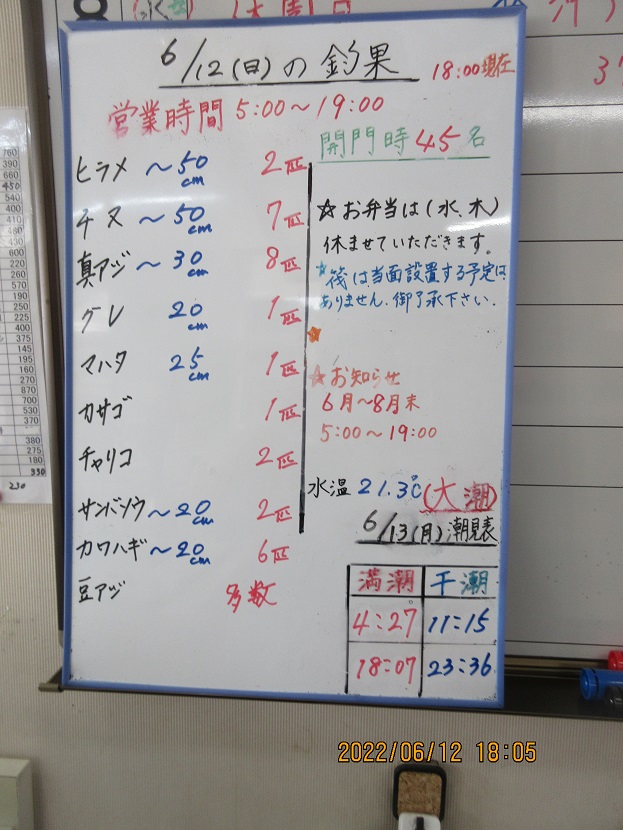 6/12(日)の釣果
18:00現在
営業時間 5:00～19:00
開門時 45名
ヒラメ ～50cm 2匹
チヌ ～50cm 7匹
真アジ ～30cm 8匹
グレ 20cm 1匹
マハタ 25cm 1匹
カサゴ 1匹
チャリコ 2匹
サンバソウ ～20cm 2匹
カワハギ ～20cm 6匹
豆アジ 多数
☆お弁当は(水、木)
休ませていただきます。
★筏は当面設置する予定は
ありません。御了承下さい。
☆お知らせ
6月～8月末
5:00～19:00
水温 21.3℃(大潮)
6/13(月)潮見表
満潮 干潮
4:27 11:15
18:07 23:36
2022/06/12 18:05